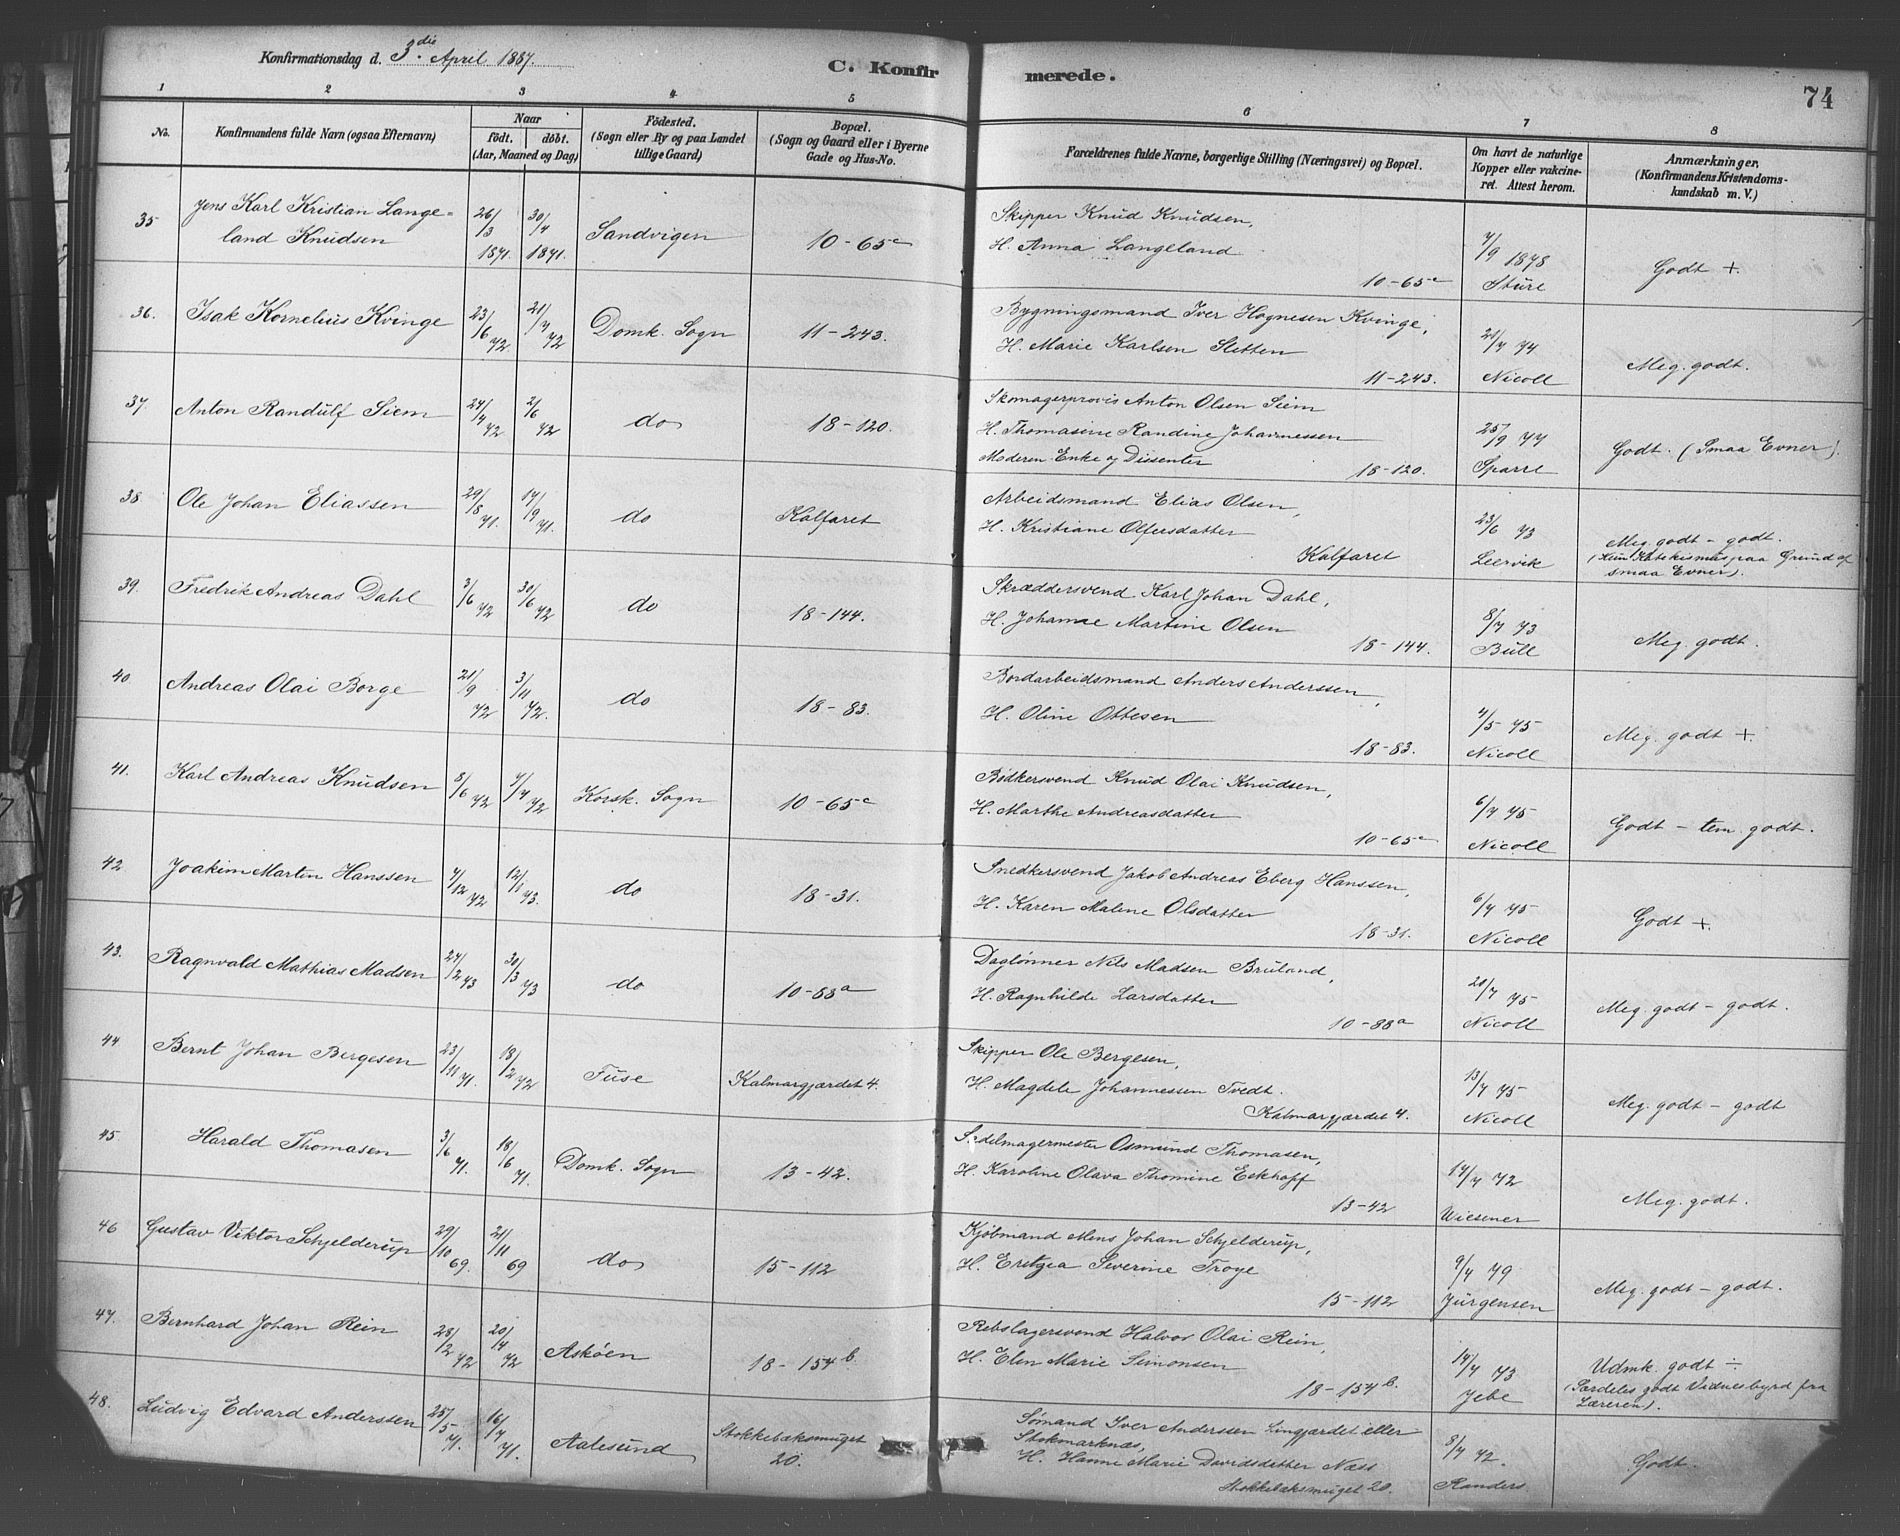 Konfirmationsdag d. 3die April 1887.
C. Konfirmerede.
74
1 2 3 4 5 6 7 8
No.
Konfirmandens fulde Navn (ogsaa Efternavn)
Naar
født. døbt.
(Aar, Maaned og Dag)
Fødested.
(Sogn eller By og paa Landet
tillige Gaard)
Bopæl.
(Sogn og Gaard eller i Byerne
Gade og Hus-No.
Forældrenes fulde Navne, borgerlige Stilling (Næringsvei) og Bopæl.
Om havt de naturlige
Kopper eller vakcine-
ret. Attest herom.
Anmærkninger.
(Konfirmandens Kristendoms-
kundskab m. V.)
35 Jens Karl Kristian Lange-
land Knudsen
26/3 1871. 30/4 1871.
Sandvigen
10-65c
Skipper Knud Knudsen,
H. Anna Langeland
10-65c
7/9 1878
Sture
Godt +
36. Isak Kornelius Kvinge
23/6 72. 21/7 72
Domk. Sogn
11-243.
Bygningsmand Iver Hognesen Kvinge,
H. Marie Karlsen Sletten
11-243.
21/7 74
Nicoll
Meg. godt.
37. Anton Randulf Siem
24/4 72. 2/6 72
do
18-120.
Skomagerprovis Anton Olsen Siem
H. Thomasine Randine Johannessen
Moderen Enke og Dissenter
18-120.
25/9 77
Sparre
Godt. (Smaa Evner).
38. Ole Johan Eliassen
29/8 71. 17/9 71.
do
Kalfaret
Arbeidsmand Elias Olsen,
H. Kristiane Olfersdatter
Kalfaret
23/6 73
Leervik
Meg. godt - godt.
(Kun Katekismus paa Grund af
smaa Evner).
39. Fredrik Andreas Dahl
3/6 72 30/6 72
do
18-144.
Skræddersvend Karl Johan Dahl,
H. Johanne Martine Olsen
18-144.
8/7 73
Bull
Meg. godt.
40. Andreas Olai Borge
21/9 72 3/11 72.
do
18-83.
Bordarbeidsmand Anders Anderssen,
H. Oline Ottesen
18-83.
4/5 75
Nicoll
Meg. godt +
41. Karl Andreas Knudsen
8/6 72 7/7 72
Korsk. Sogn
10-65c
Bødkersvend Knud Olai Knudsen,
H. Marthe Andreasdatter
10-65c
6/7 75
Nicoll
Godt - tem. godt.
42 Joakim Martin Hanssen
7/12 72 12/1 73.
do
18-31.
Snedkersvend Jakob Andreas Eberg Hanssen,
H. Karen Malene Olsdatter
18-31.
6/7 75
Nicoll
Godt +
43. Ragnvald Mathias Madsen
24/2 73 30/3 73
do
10-88a
Daglønner Nils Madsen Bruland,
H. Ragnhilde Larsdatter
10-88a
20/7 75
Nicoll
Meg. godt - godt.
44 Bernt Johan Bergesen
23/11 71. 18/2 72
Fuse
Kalmargjærdet 4.
Skipper Ole Bergesen,
H. Magdele Johannessen Tvedt.
Kalmargjærdet 4.
13/7 75
Nicoll
Meg. godt - godt
45. Harald Thomasen
3/6 71. 18/6 71.
Domk. Sogn
13-42.
Sadelmagermester Osmund Thomasen,
H. Karoline Olava Thomine Eckhoff
13-42
17/7 72
Wiesener
Meg. godt.
46 Gustav Viktor Schjelderup
29/10 69. 21/11 69
do
15-112
Kjøbmand Mens Johan Schjelderup,
H. Severine Troye
15-112
9/7 79
Jürgensen
Meg. godt - godt.
47. Bernhard Johan Rein
28/2 72 20/4 72
Askøen
18-154b.
Rebslagersvend Halvor Olai Rein,
H. Elen Marie Simonsen
18-154b.
14/7 73
Jebe
Udmk. godt ÷
(Særdeles godt Vidnesbyrd fra
Læreren).
48. Ludvig Edvard Anderssen
25/5 71. 16/7 71.
Aalesund
Stokkebæksmuget
20.
Sømand Iver Anderssen Lingjærdet eller
Stokmarknæs,
H. Hanne Marie Davidsdatter Næss
Stokkebæksmuget 20.
8/7 72.
Randers.
Godt.